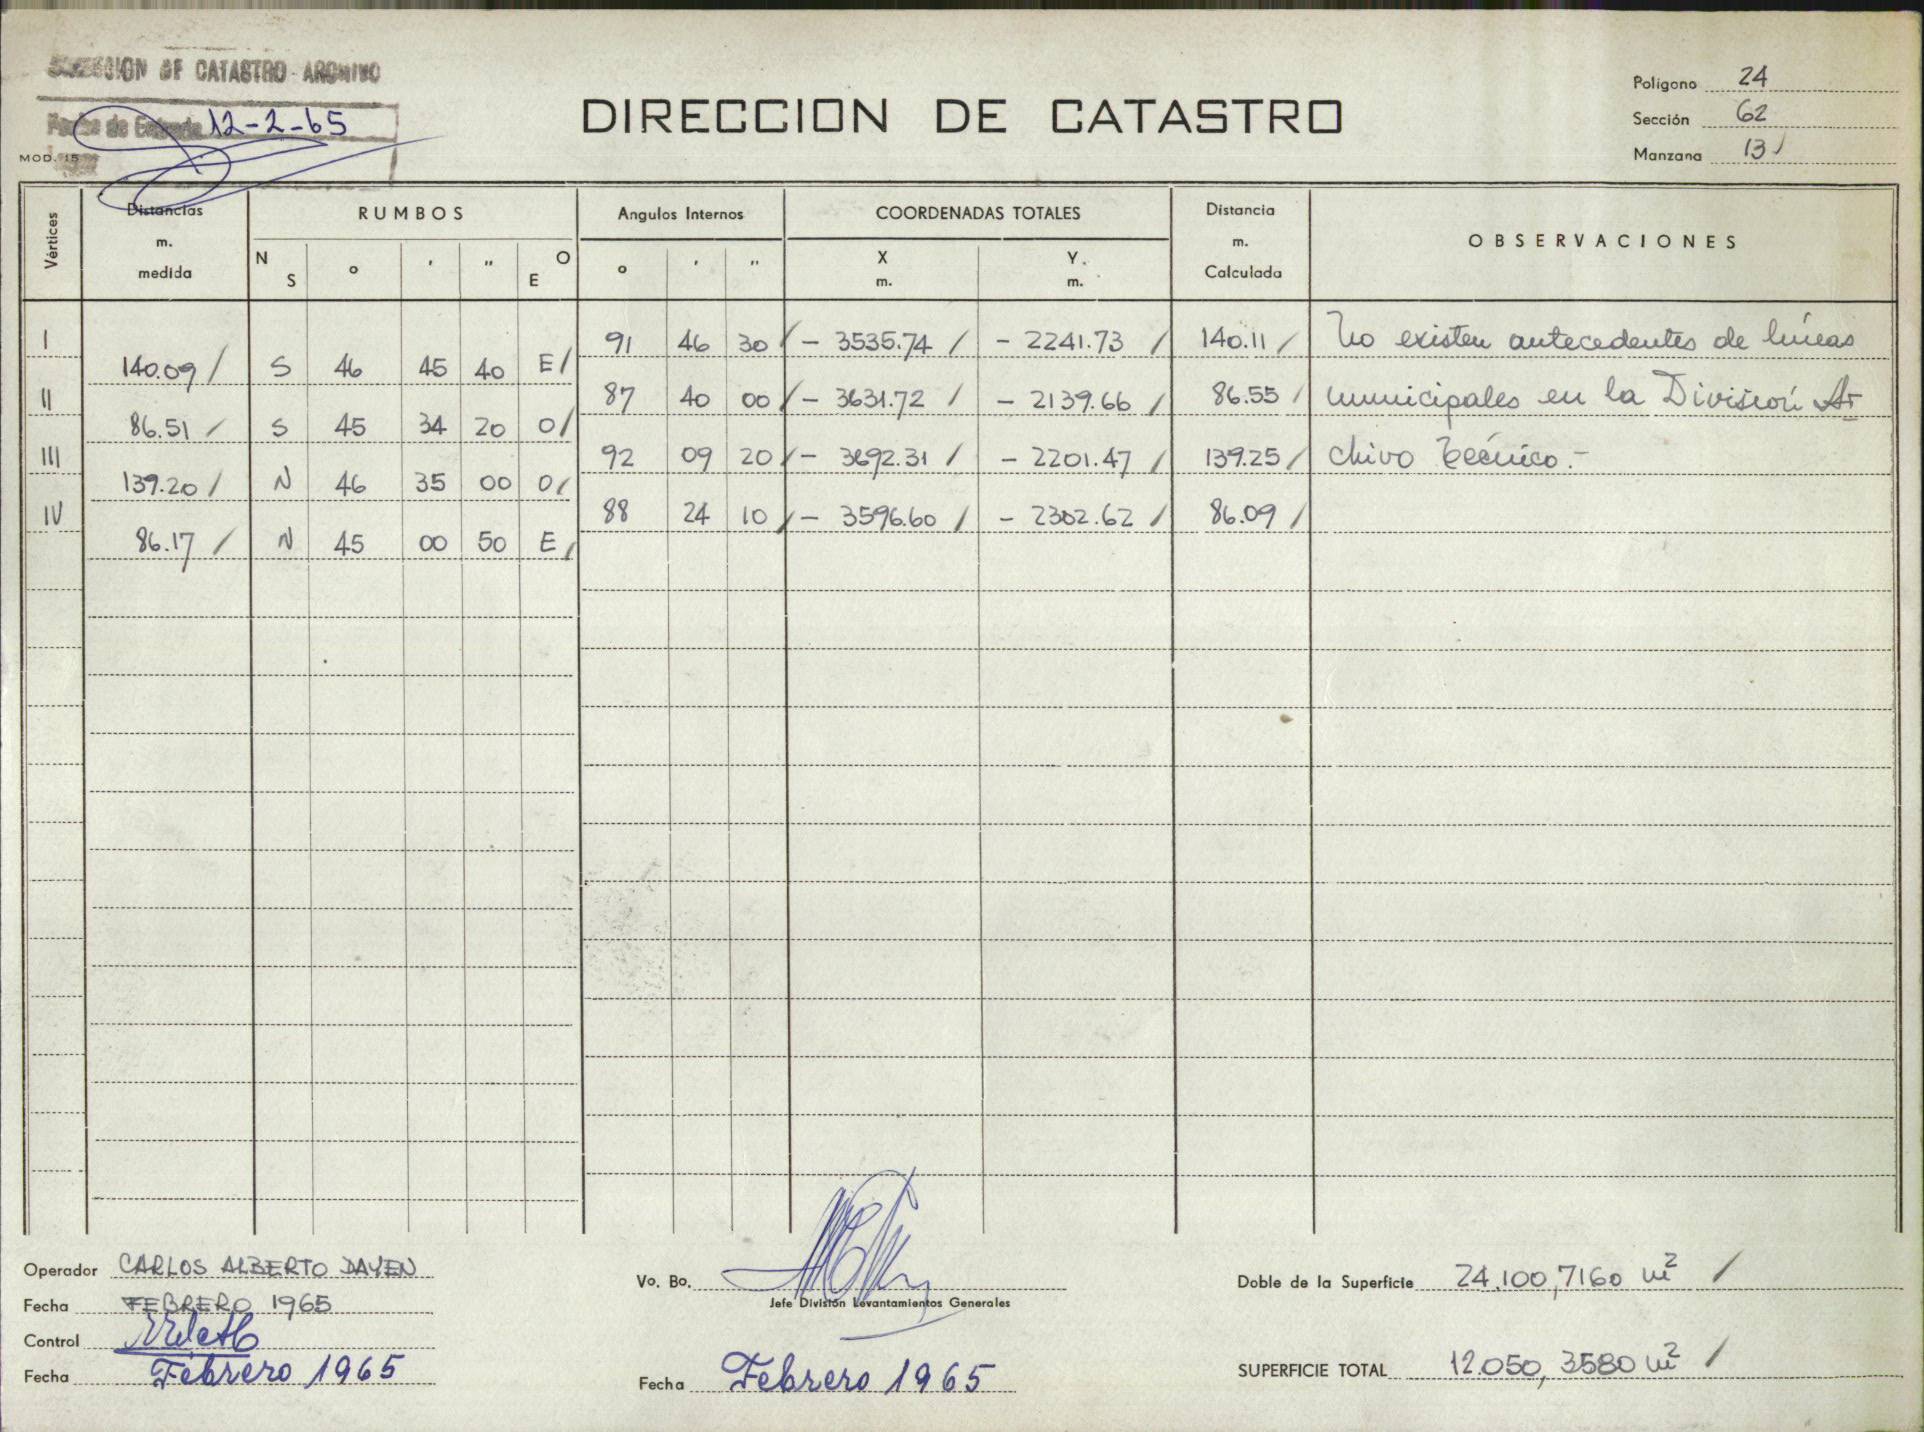 DIRECCION DE CATASTRO-ARCHIVO
Fecha de Entrada 12-2-65
MOD. 15
DIRECCION DE CATASTRO
Polígono 24
Sección 62
Manzana 13
Vértices
Distancias m. medida
RUMBOS
N S ° ' " O E
Angulos Internos
° ' "
COORDENADAS TOTALES
X m. Y. m.
Distancia m. Calculada
OBSERVACIONES
I 91 46 30 - 3535.74 - 2241.73 140.11 No existen antecedentes de líneas
140.09 S 46 45 40 E
II 87 40 00 - 3631.72 - 2139.66 86.55 municipales en la División Ar
86.51 S 45 34 20 O
III 92 09 20 - 3692.31 - 2201.47 139.25 chivo Técnico.-
139.20 N 46 35 00 O
IV 88 24 10 - 3596.60 - 2302.62 86.09
86.17 N 45 00 50 E
Operador CARLOS ALBERTO DAYEN
Fecha FEBRERO 1965
Control
Fecha Febrero 1965
Vo. Bo.
Jefe División Levantamientos Generales
Fecha Febrero 1965
Doble de la Superficie 24.100,7160 m²
SUPERFICIE TOTAL 12.050,3580 m²